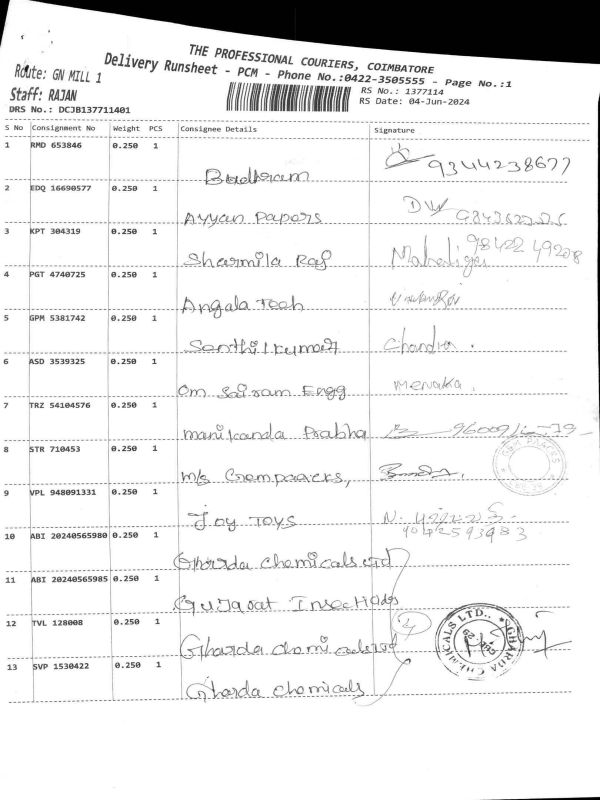 THE PROFESSIONAL COURIERS, COIMBATORE
Delivery Runsheet - PCM - Phone No.:0422-3505555 - Page No.:1
Route: GN MILL 1
Staff: RAJAN
DRS No.: DCJB137711401
RS No.: 1377114
RS Date: 04-Jun-2024
S No Consignment No Weight PCS Consignee Details Signature
1 RMD 653846 0.250 1
Budhram 9344238677
2 EDQ 16690577 0.250 1
Ayyan Papers
3 KPT 304319 0.250 1
Sharmila Raj 9842249208
4 PGT 4740725 0.250 1
Angala Tech
5 GPM 5381742 0.250 1
Senthilkumar Chandra.
6 ASD 3539325 0.250 1
Om Sairam Engg Menaka.
7 TRZ 54104576 0.250 1
Manikanda Prabha
8 STR 710453 0.250 1
M/s Gempaacers,
9 VPL 948091331 0.250 1
Joy Toys
9042593983
10 ABI 20240565980 0.250 1
Gharda chemicals Ltd
11 ABI 20240565985 0.250 1
Gujarat Insecticides
12 TVL 128008 0.250 1
Gharda chemicals Ltd 4
GHARDA CHEMICALS LTD.,
13 SVP 1530422 0.250 1
Gharda chemicals